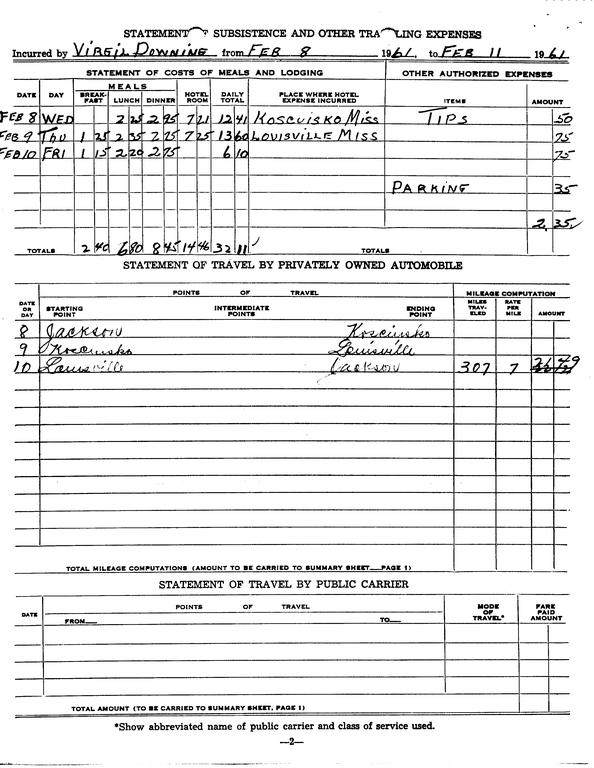 STATEMENT OF SUBSISTENCE AND OTHER TRAVELING EXPENSES
Incurred by VIRGIL DOWNING from FEB 8 1961, to FEB 11 1961
STATEMENT OF COSTS OF MEALS AND LODGING OTHER AUTHORIZED EXPENSES
DATE DAY MEALS BREAK-FAST LUNCH DINNER HOTEL ROOM DAILY TOTAL PLACE WHERE HOTEL EXPENSE INCURRED ITEMS AMOUNT
FEB 8 WED 2 25 2 95 7 21 12 41 KOSCUISKO MISS TIPS 50
FEB 9 THU 1 25 2 35 2 75 7 25 13 60 LOUISVILLE MISS 75
FEB 10 FRI 1 15 2 20 2 75 6 10 75
PARKING 35
2 35
TOTALS 2 40 6 80 8 45 14 46 32 11 TOTALS
STATEMENT OF TRAVEL BY PRIVATELY OWNED AUTOMOBILE
POINTS OF TRAVEL MILEAGE COMPUTATION
DATE OR DAY STARTING POINT INTERMEDIATE POINTS ENDING POINT MILES TRAV-ELED RATE PER MILE AMOUNT
8 Jackson Kosciusko
9 Kosciusko Louisville
10 Louisville Jackson 307 7
TOTAL MILEAGE COMPUTATIONS (AMOUNT TO BE CARRIED TO SUMMARY SHEET—PAGE 1)
STATEMENT OF TRAVEL BY PUBLIC CARRIER
DATE POINTS OF TRAVEL MODE OF TRAVEL* FARE PAID AMOUNT
FROM— TO—
TOTAL AMOUNT (TO BE CARRIED TO SUMMARY SHEET, PAGE 1)
*Show abbreviated name of public carrier and class of service used.
—2—